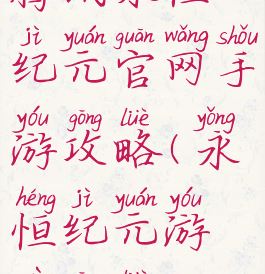 jì yuán guān wǎng shǒu
纪元官网手
yóu gōng lüè yǒng
游攻略(永
héng jì yuán yóu
恒纪元游